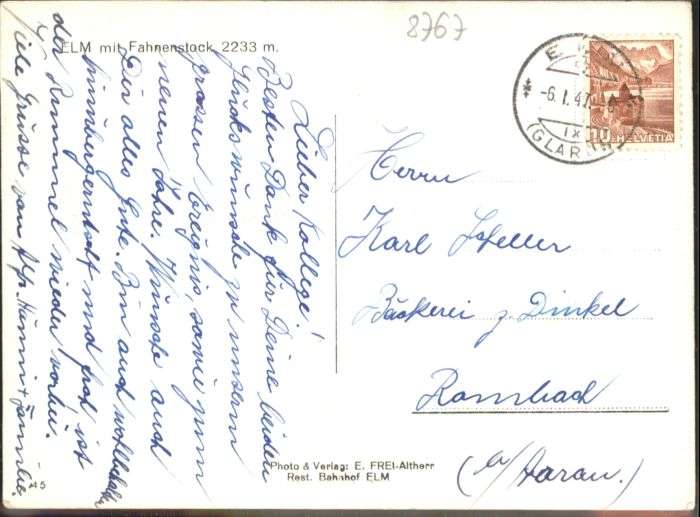 8767
ELM mit Fahnenstock 2233 m.
Lieber Kollege!
Besten Dank für Deine beiden
Glückwünsche zu unserm
grossen Ereignis, sowie zum
neuen Jahre. Wünsche auch
Dir alles Gute. Bin auch
und hat ist
der Rummel wieder vorbei.
Viele Grüsse von Alfr. + Familie.
ELM
-6.I.47.
IX
(GLARUS)
10
HELVETIA
Herrn
Karl Scheller
Bäckerei z. Dinkel
Rombach
(b/Aarau.)
Photo & Verlag: E. FREI-Altherr
Rest. Bahnhof ELM
45